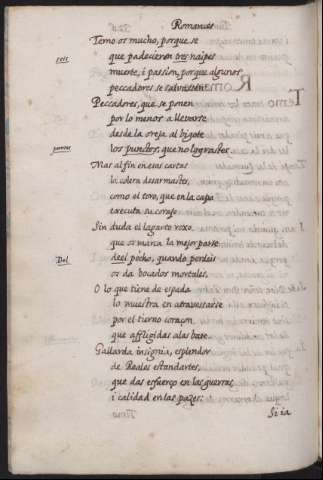 Romances
Temo os mucho, porque se
seis
que padecieron tres naipes
muerte, i passion, porque algunos
peccadores se salvassen.
Peccadores, que se ponen
por lo menos a llevarse
desde la oreja al bigote
puntos
los punctos, que no lograstes.
Mas al fin en esas cartas
la colera desarmastes,
como el toro, que en la capa
executa su coraje.
Sin duda el lagarto roxo,
que os marca la mejor parte
Del
deel pecho, quando perdeis
os da bocados mortales.
O lo que tiene de espada
lo muestra en atravessarse
por el tierno coraçon
que affligidas alas bate.
Gallarda insignia, esplendor
de Reales estandartes,
que das esfuerço en las guerras,
i calidad en las pazes:
Si ia